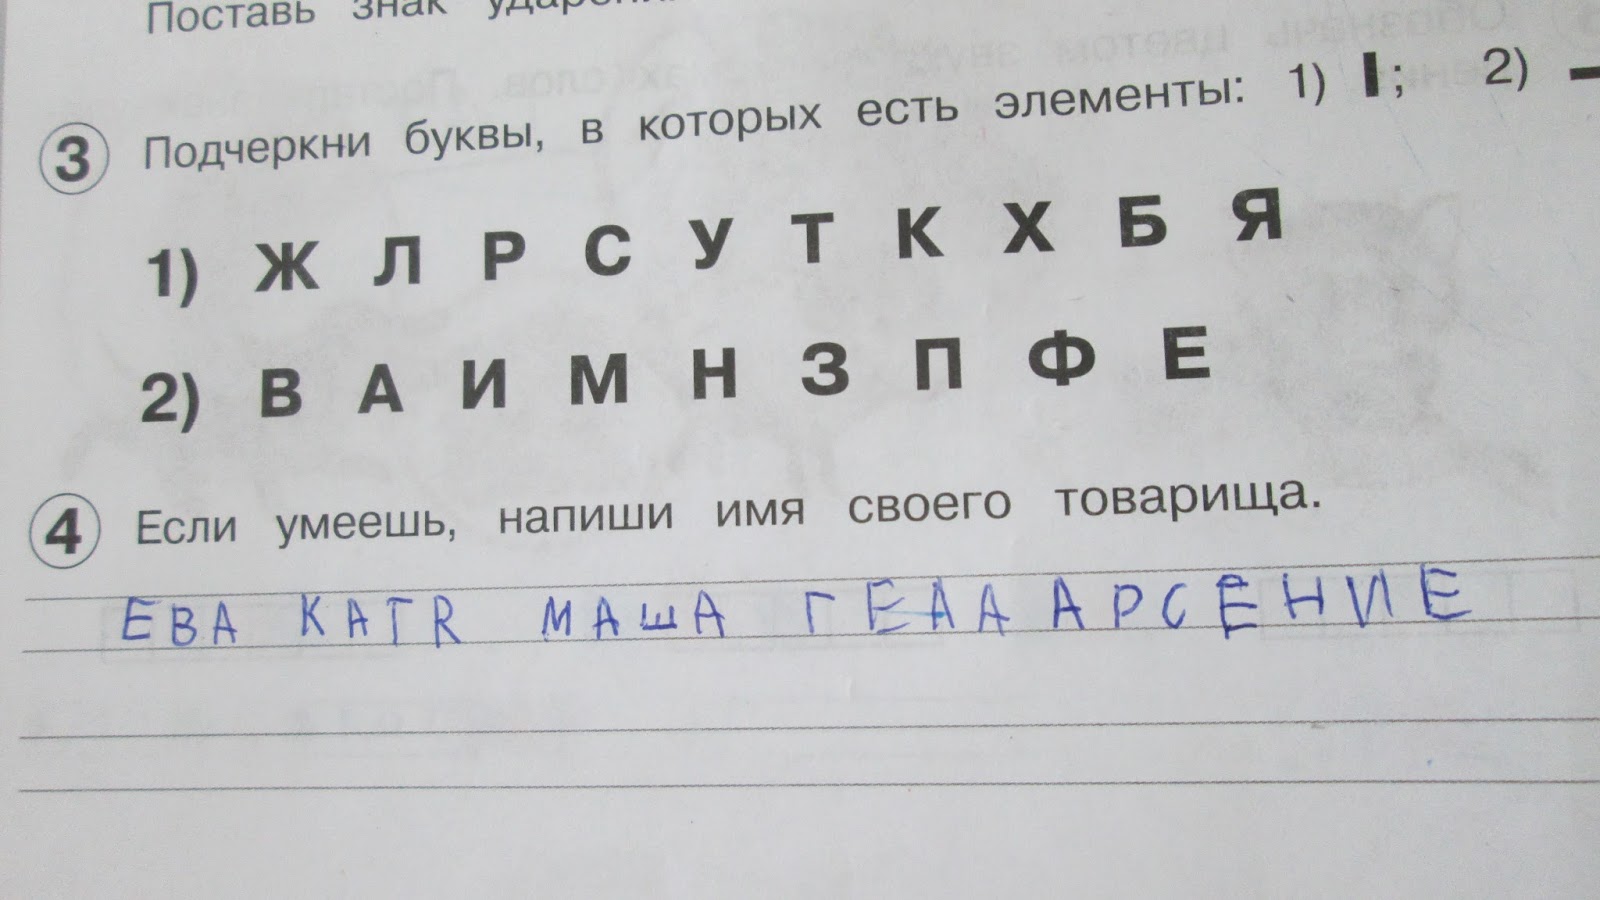 Поставь знак
3 Подчеркни буквы, в которых есть элементы: 1) I; 2) –
1) Ж Л Р С У Т К Х Б Я
2) В А И М Н З П Ф Е
4 Если умеешь, напиши имя своего товарища.
ЕВА КАТR МАША ГЕАА АРСЕНИЕ